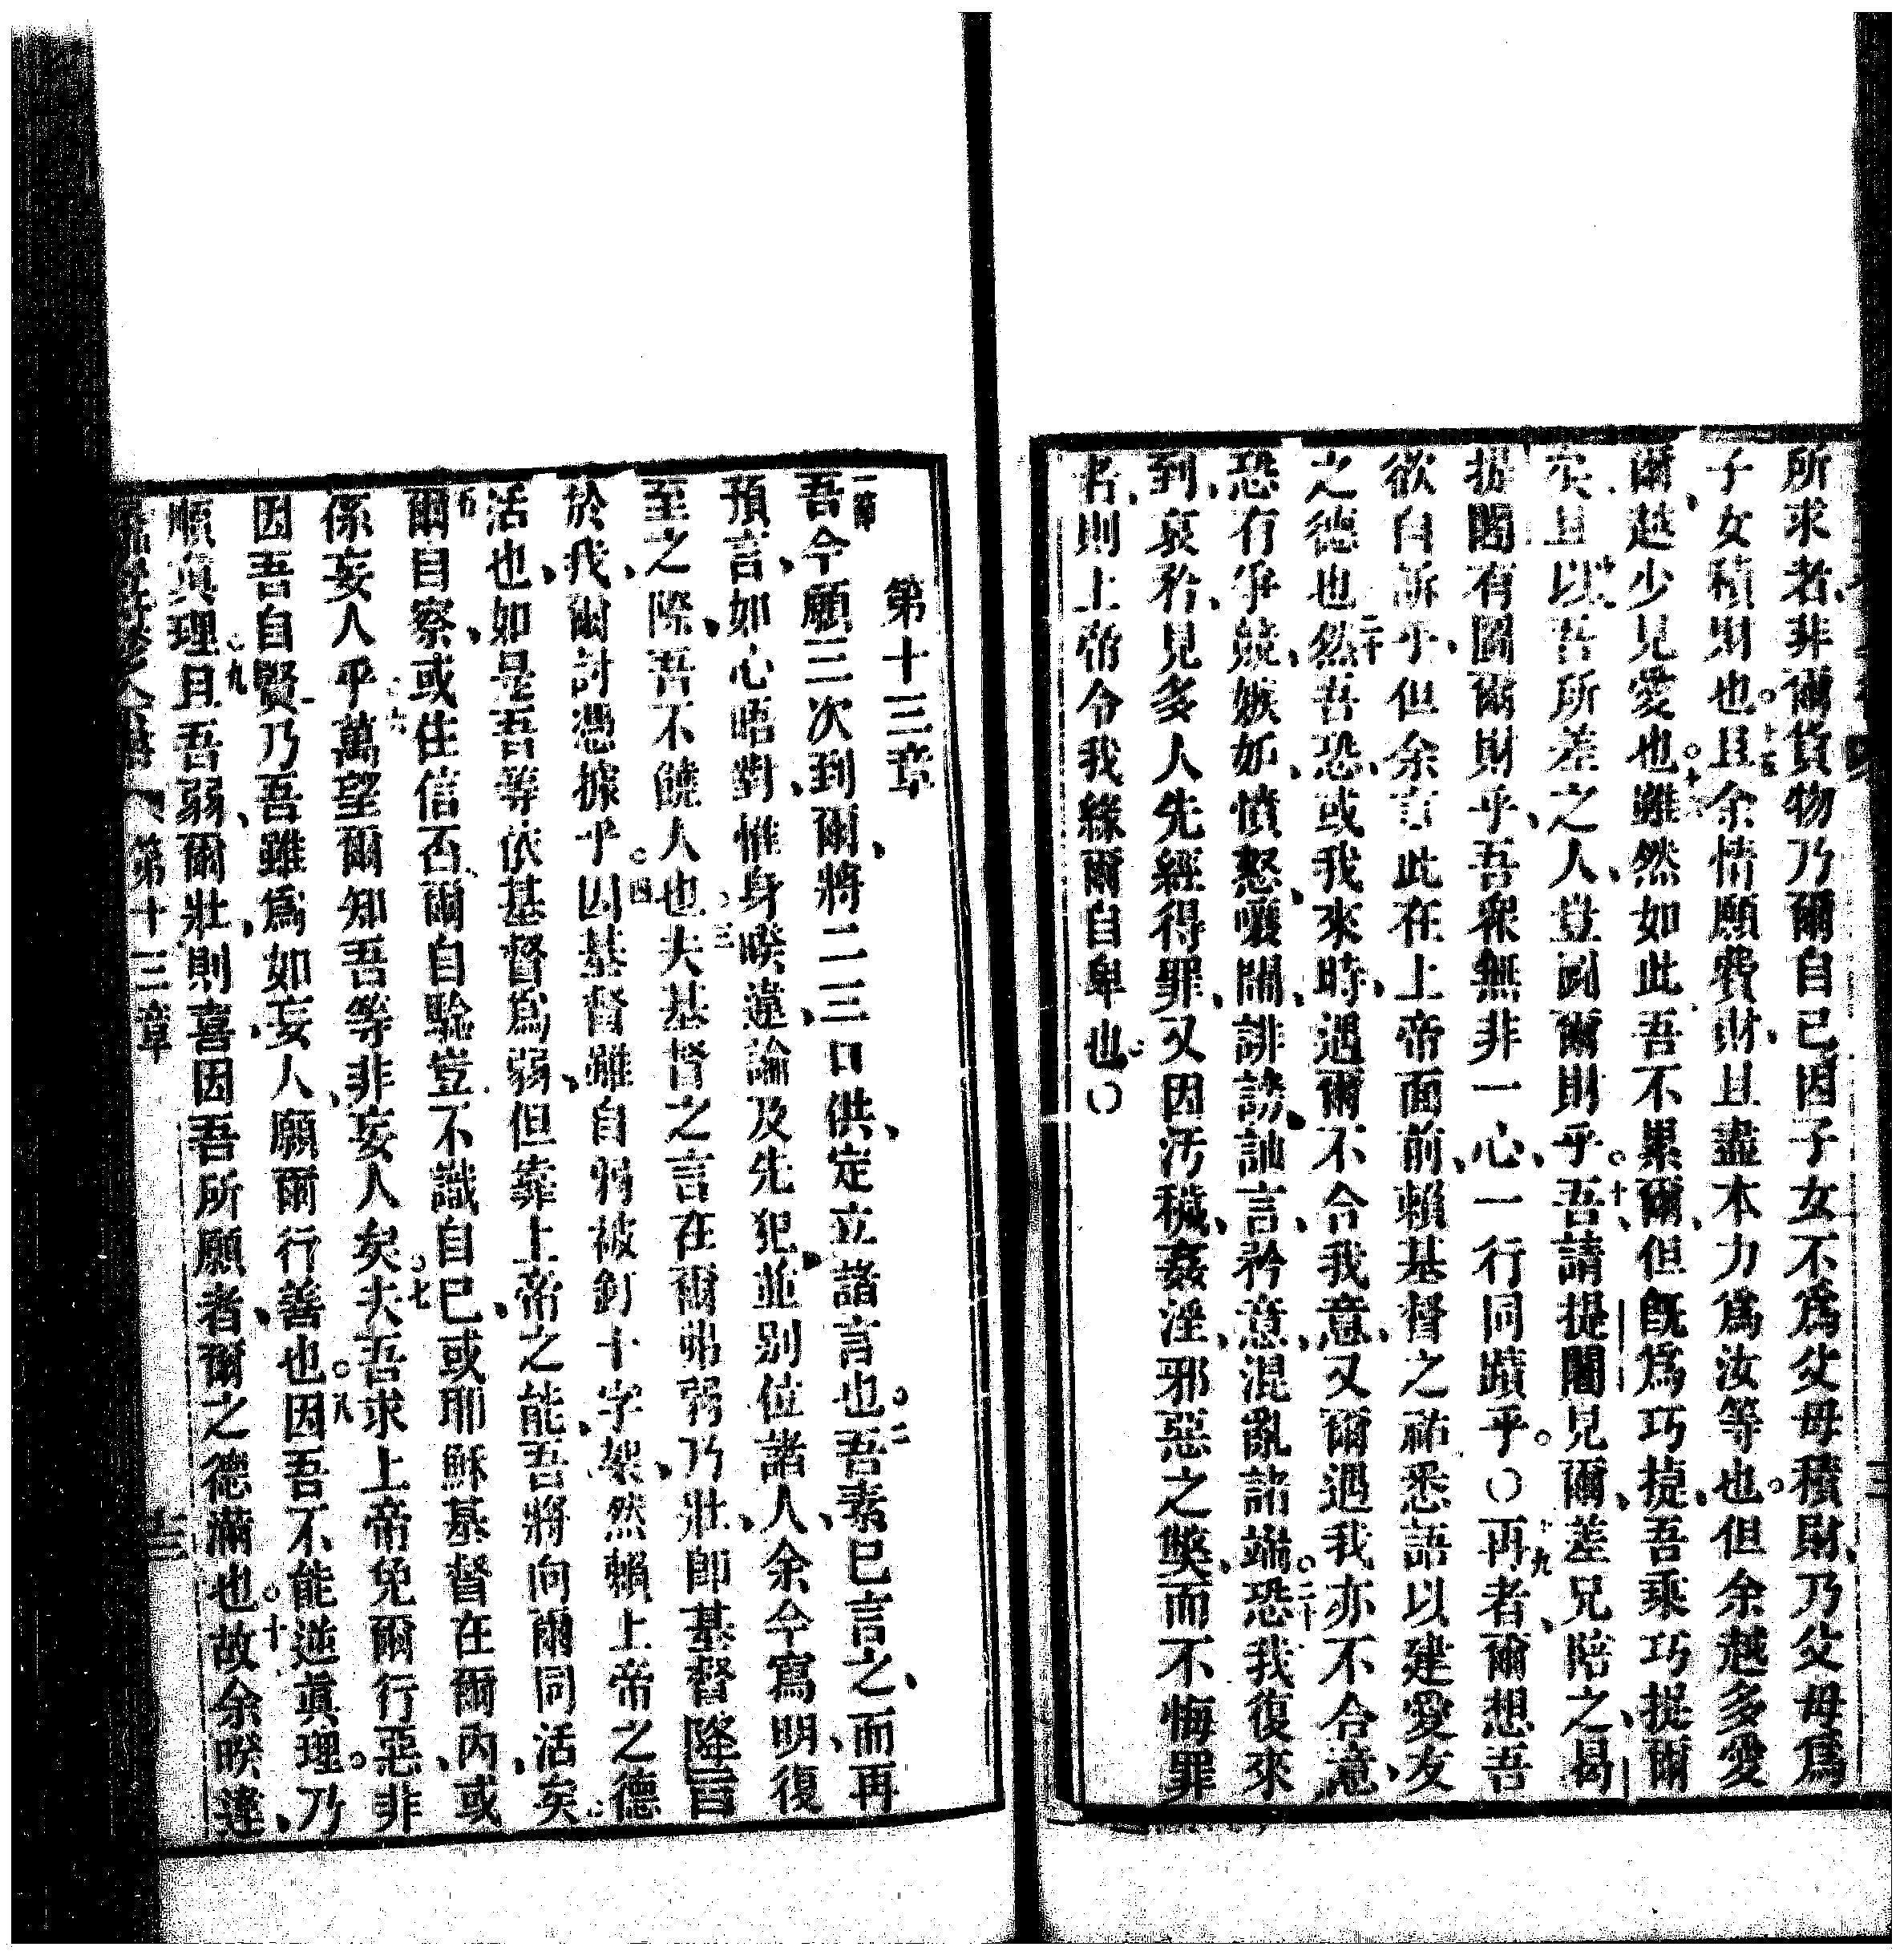 所求者、非爾貨物乃爾自己因子女不爲父母積財、乃父母爲
子女積財也。十五且余情願費財、且盡本力爲汝等也。但余越多愛
爾、越少見愛也。十六雖然如此吾不累爾、但既爲巧捷、吾乘巧捉爾
矣且以吾所差之人、豈圖爾財乎。吾、請提闍兄爾、差兄陪之、曷
提闍有圖爾財乎、吾衆無非一心、一行同蹟乎。〇十九再者、爾想吾
欲白訴乎、但余言此在上帝面前、賴基督之祐悉語以建愛友
之德也二十然吾恐、或我來時、遇爾不合我意、又爾遇我亦不合意、
恐有爭競、嫉妒、憤怒、嚷鬧、誹謗、訕言、矜意、混亂諸端。恐我復來
到、哀矜、見多人先經得罪、又因汚穢、姦淫、邪惡之獘、而不悔罪
者、則上帝令我緣爾自卑也。〇
第十三章
一節吾今願三次到爾、將二三口供、定立諸言也。二吾素已言之、而再
預言、如心晤對、惟身暌違、論及先犯、並别位諸人、余今寫明、復
至之際、吾不饒人也、三夫基督之言在爾弗弱乃壯、卽基督降言
於我、爾討憑據乎。四因基督雖自弱被釘十字架、然賴上帝之德
活也、如是吾等依基督爲弱、但靠上帝之能、吾將向爾同活矣
五爾自察、或住信否爾自騐豈不識自已、或耶穌基督在爾內、或
係妄人乎六萬望爾知吾等非妄人矣。七夫吾求上帝免爾行惡、非
因吾自賢乃吾雖爲如妄人、願爾行善也。八因吾不能逆眞理。乃
順眞理。九且吾弱、爾壯、則喜、因吾所願者、爾之德滿也。十故余暌違、
第十三章